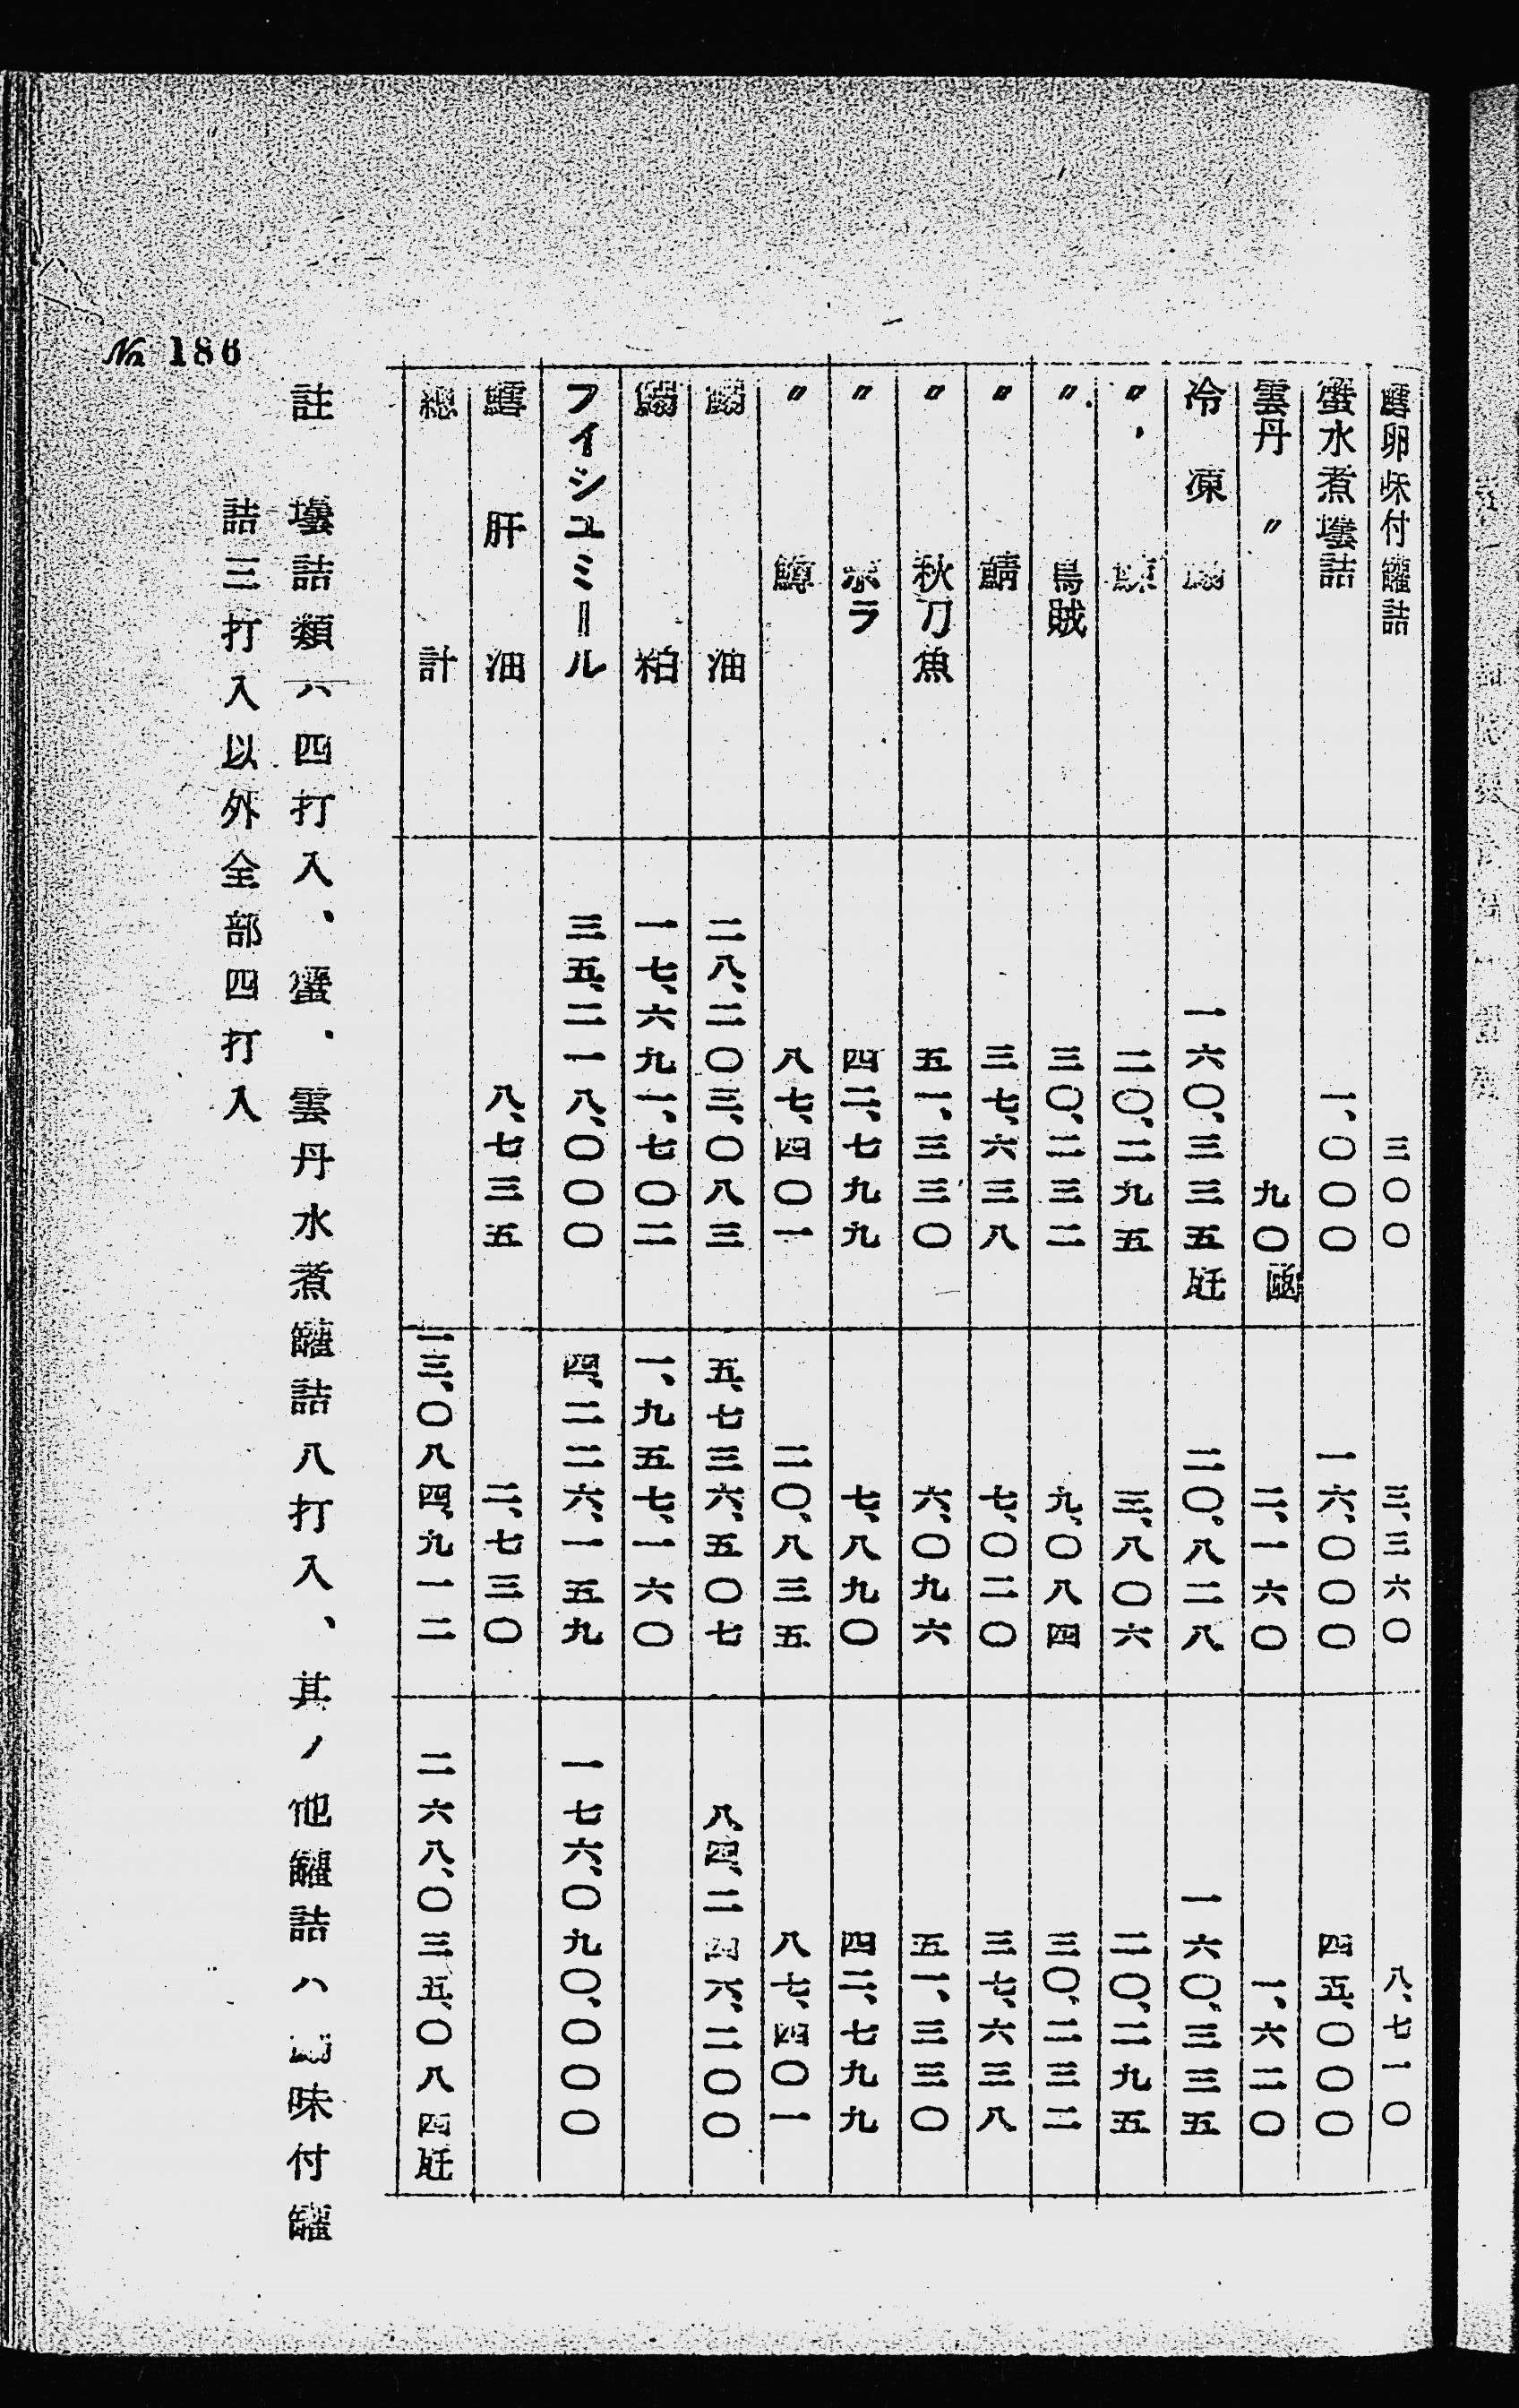 鱈卵味付罐詰 三〇〇 三、三六〇 八、七一〇
蟹水煮壜詰 一、〇〇〇 一六、〇〇〇 四五、〇〇〇
雲丹〃 九〇函 二、一六〇 一、六二〇
冷凍鰯 一六〇、三三五瓩 二〇、八二八 一六〇、三三五
〃 二〇、二九五 三、八〇六 二〇、二九五
〃 烏賊 三〇、二三二 九、〇八四 三〇、二三二
〃 鯖 三七、六三八 七、〇二〇 三七、六三八
〃 秋刀魚 五一、三三〇 六、〇九六 五一、三三〇
〃 ボラ 四二、七九九 七、八九〇 四二、七九九
〃 鱒 八七、四〇一 二〇、八三五 八七、四〇一
鰯油 二八、二〇三、〇八三 五、七三六、五〇七 八四、二四六、二〇〇
鰯粕 一七、六九一、七〇二 一、九五七、一六〇
フイシユミール 三五、二一八、〇〇〇 四、二二六、一五九 一七六、〇九〇、〇〇〇
鱈肝油 八、七三五 二、七三〇
總計 一三、〇八四、九一二 二六八、〇三五、〇八四瓩
註 壜詰類ハ四打入、蟹、雲丹水煮罐詰八打入、其ノ他罐詰ハ鰯味付罐
詰三打入以外全部四打入
№ 186